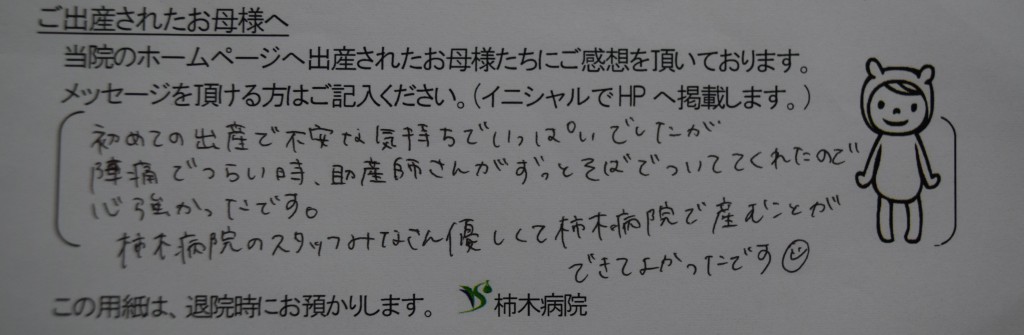 ご出産されたお母様へ
当院のホームページへ出産されたお母様たちにご感想を頂いております。
メッセージを頂ける方はご記入ください。(イニシャルでHPへ掲載します。)
初めての出産で不安な気持ちでいっぱいでしたが
陣痛でつらい時、助産師さんがずっとそばでついててくれたので
心強かったです。
柿木病院のスタッフみなさん優しくて柿木病院で産むことが
できてよかったです
この用紙は、退院時にお預かりします。 柿木病院